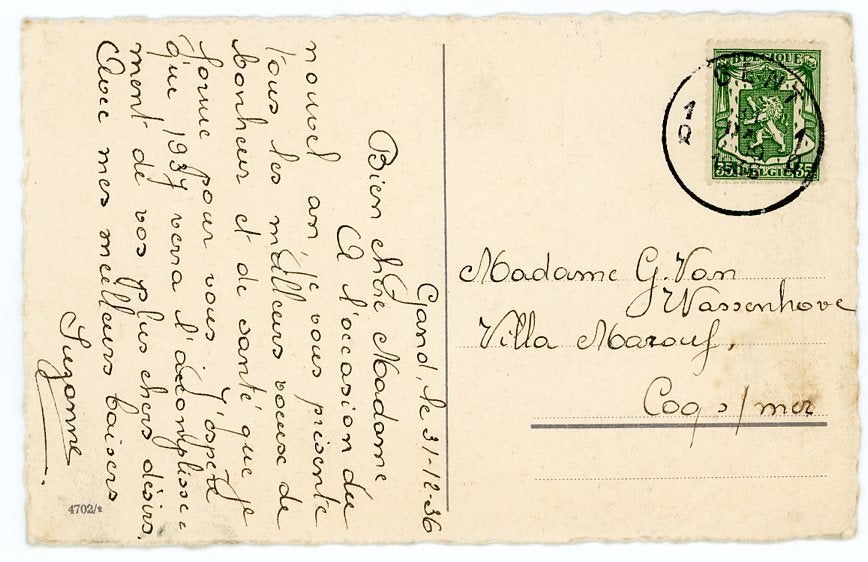 Gand, le 31-12-36
Bien chère Madame
A l'occasion du
nouvel an, je vous présente
tous les meilleurs voeux de
bonheur et de santé que je
forme pour vous. J'espère
que 1937 verra l'accomplisse=
ment de vos plus chers désirs.
Avec mes meilleurs baisers
Suzanne
4702/2
BELGIQUE
GENT
1
Q
1
Q
35 BELGIE 35
Madame G. Van
Wassenhove
Villa Marouf,
Coq s/mer